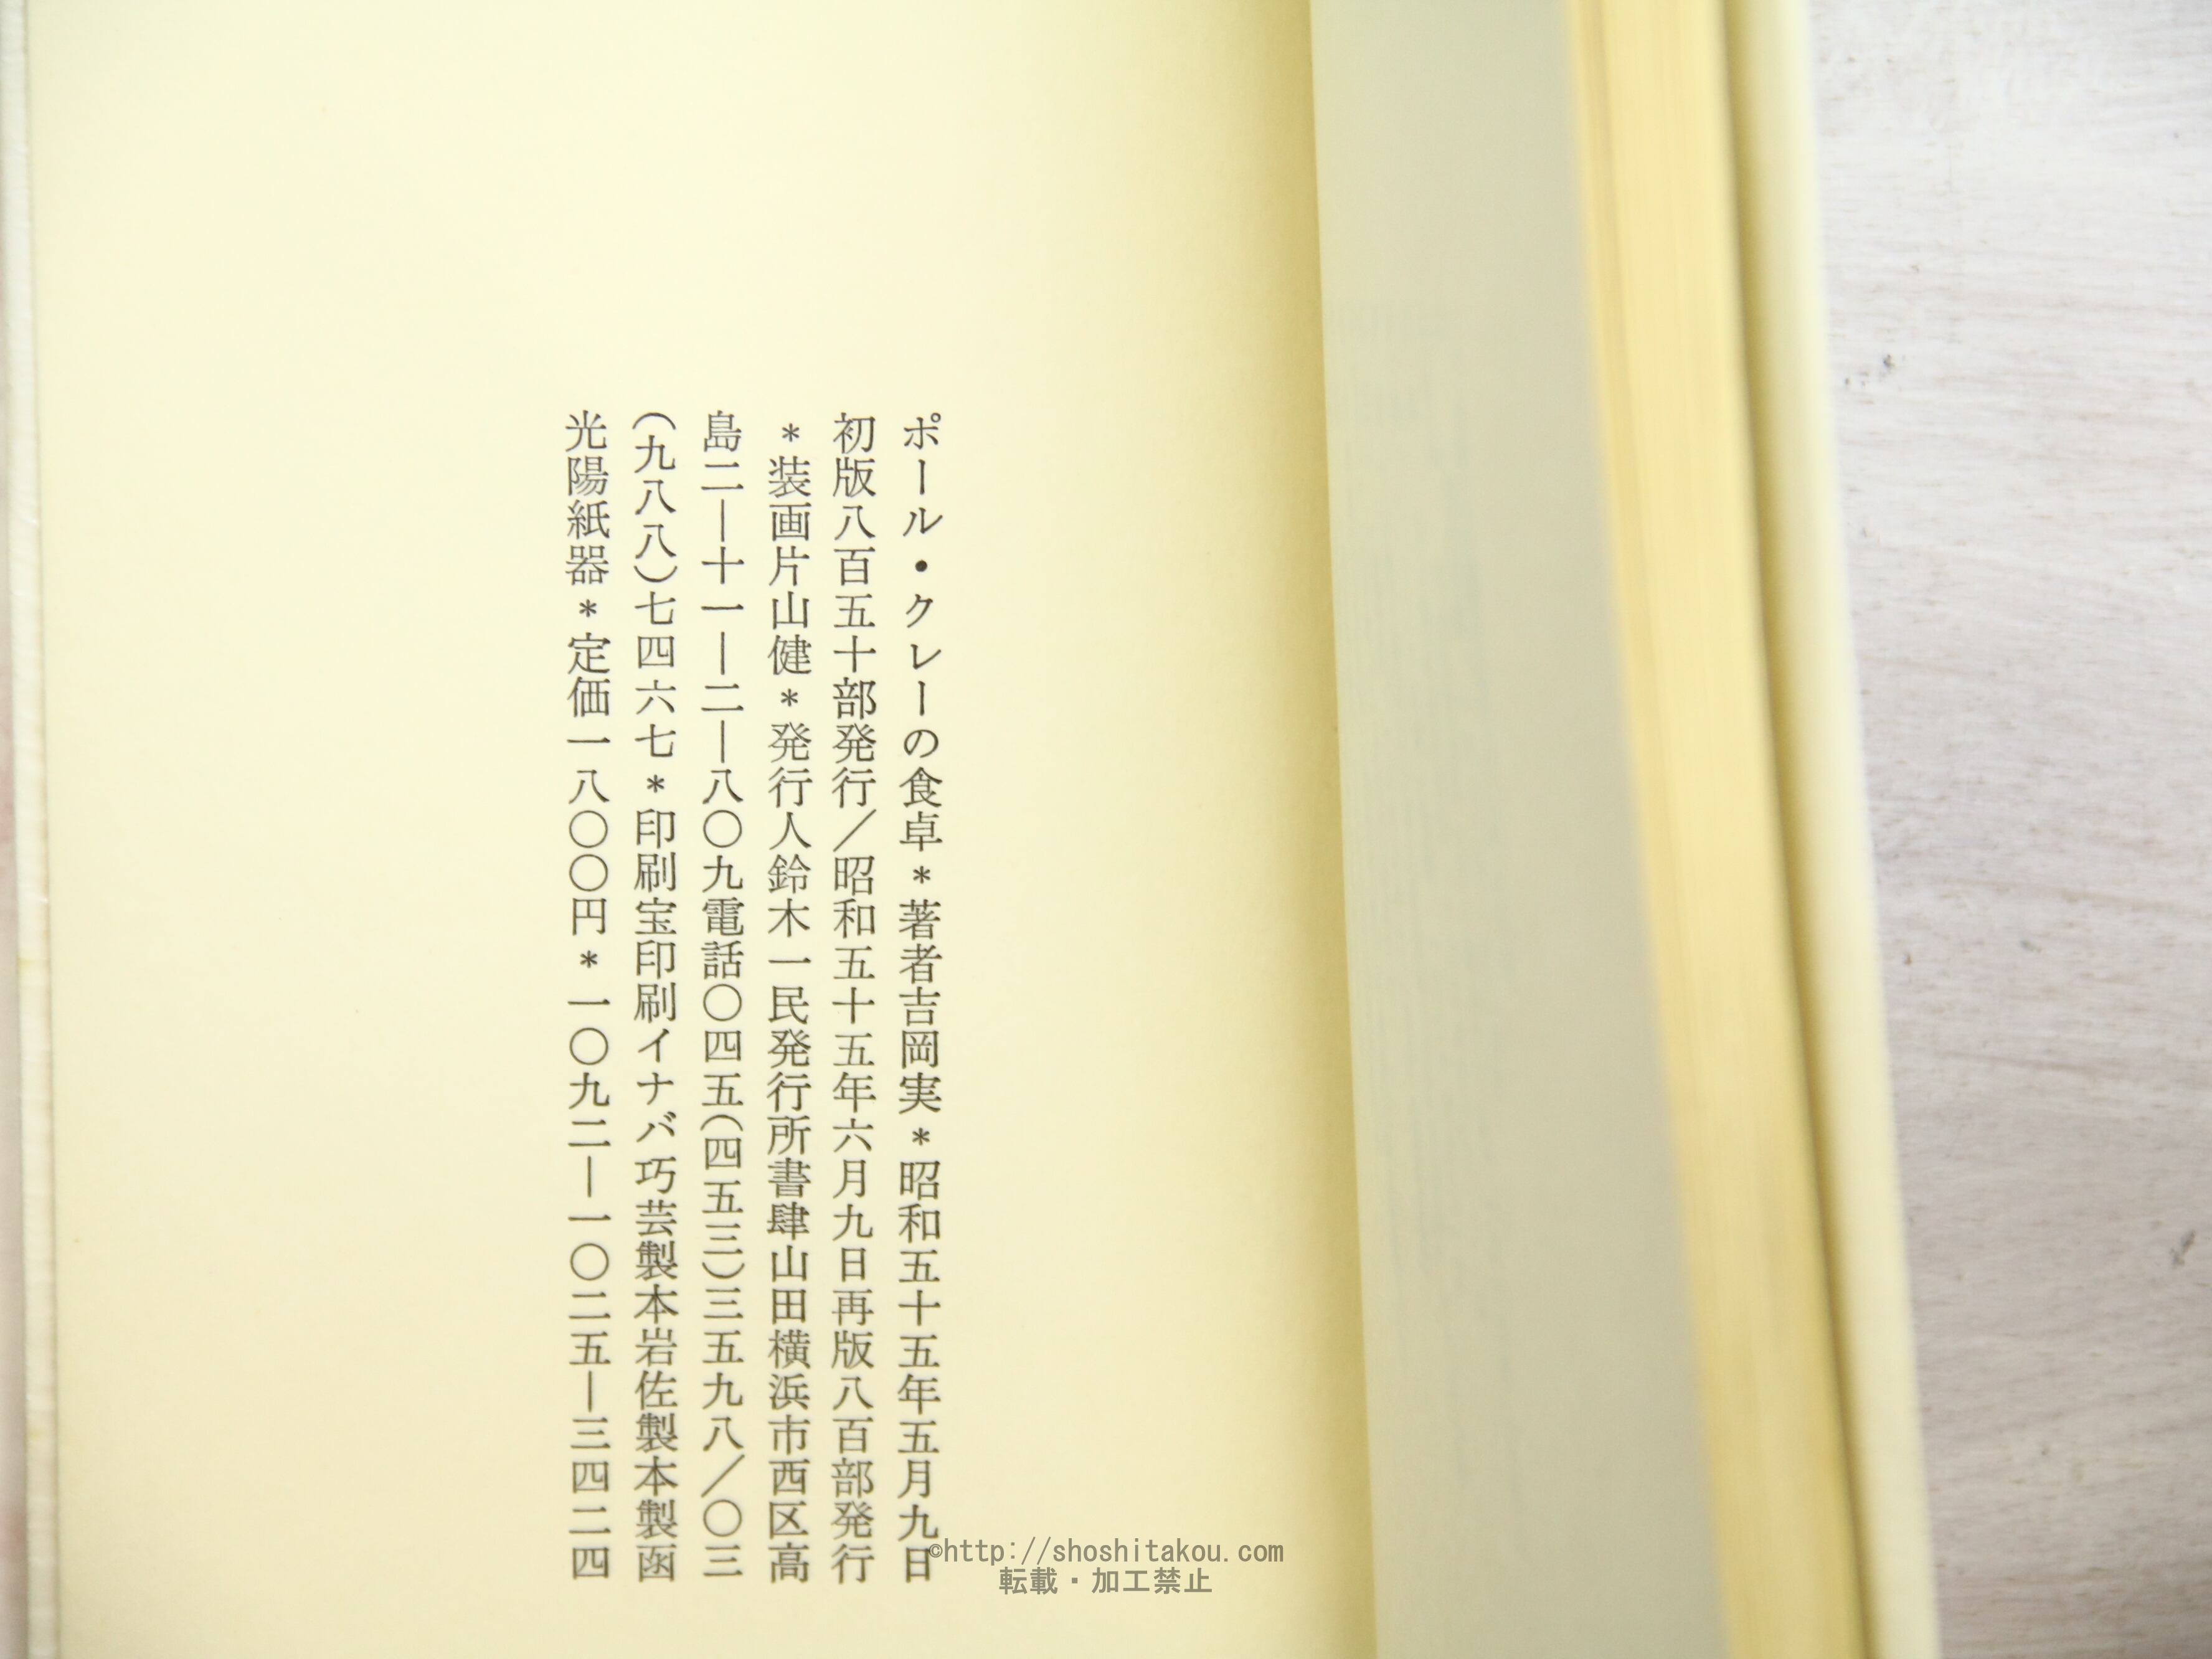 ポール・クレーの食卓＊著者吉岡実＊昭和五十五年五月九日
初版八百五十部発行／昭和五十五年六月九日再版八百部発行
＊装画片山健＊発行人鈴木一民発行所書肆山田横浜市西区高
島二―十一―二―八〇九電話〇四五(四五三)三五九八／〇三
(九八八)七四六七＊印刷宝印刷イナバ巧芸製本岩佐製本製函
光陽紙器＊定価一八〇〇円＊一〇九二―一〇二五―三四二四
©http://shoshitakou.com
転載・加工禁止